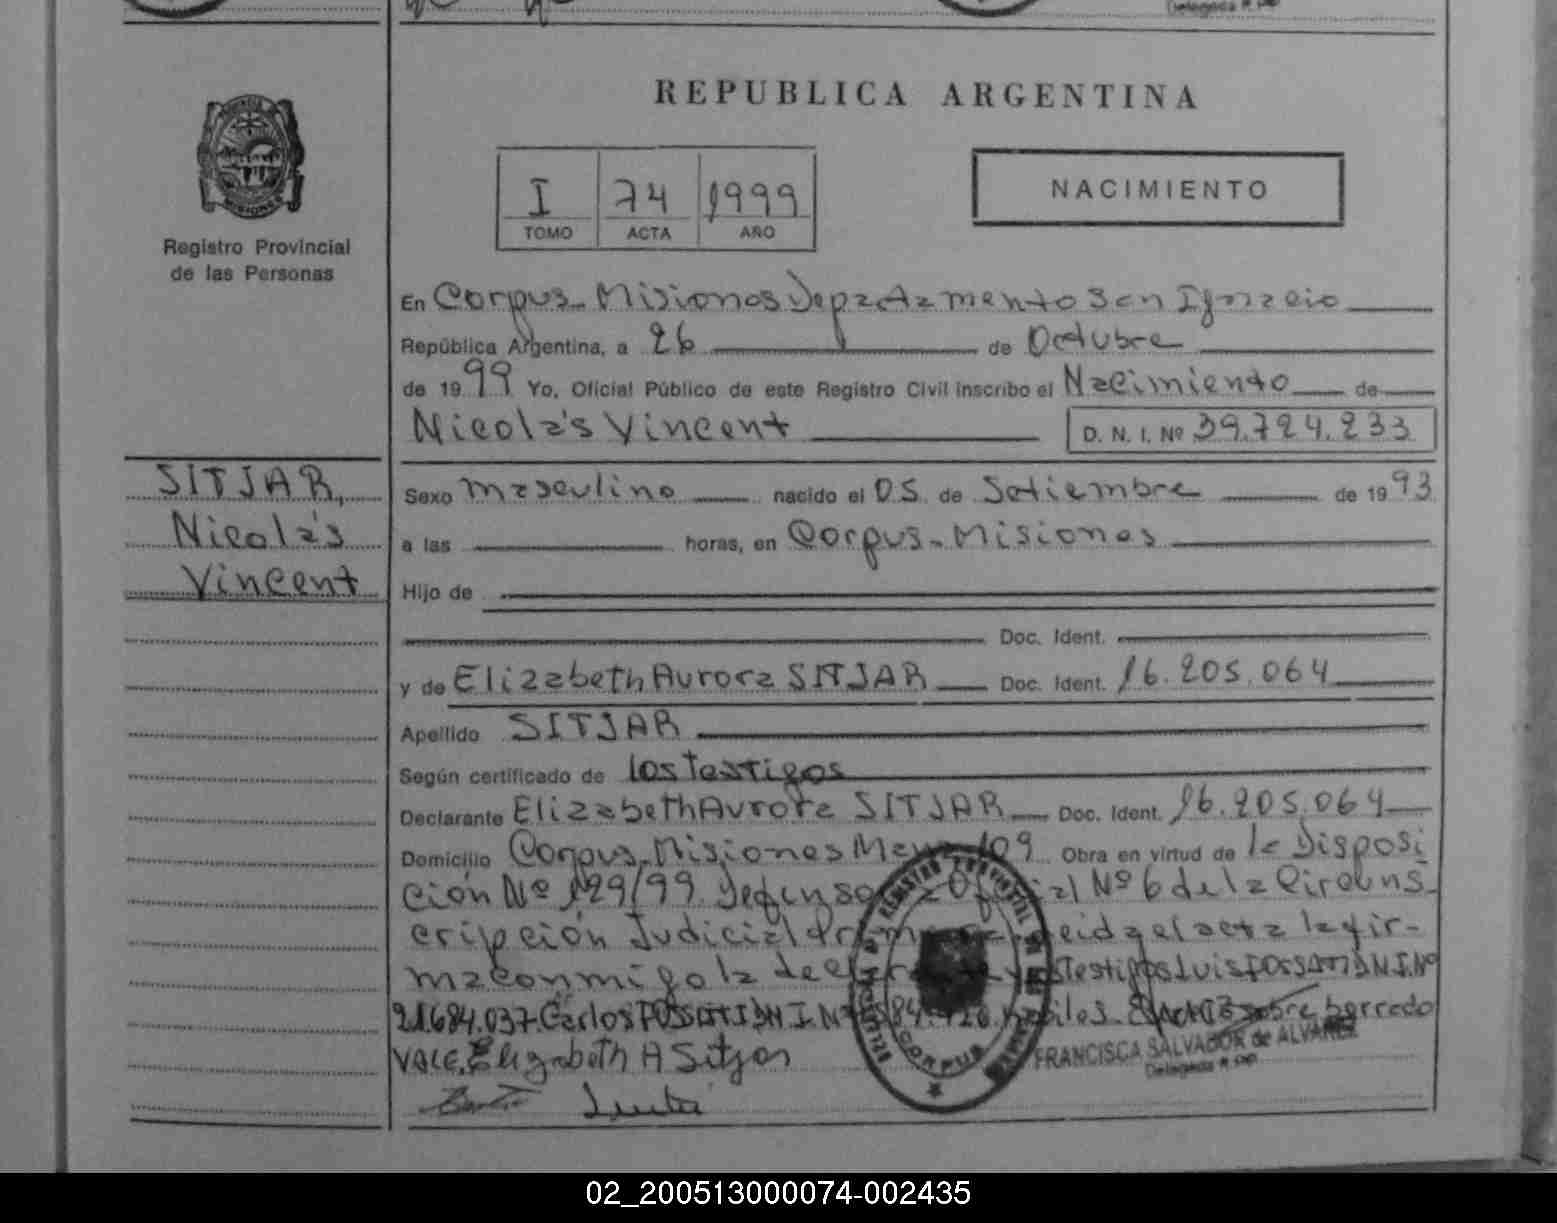 REPUBLICA ARGENTINA
MISIONES
Registro Provincial
de las Personas
I 74 1999
TOMO ACTA AÑO
NACIMIENTO
En Corpus - Misiones Departamento San Ignacio
República Argentina, a 26 de Octubre
de 1999 Yo, Oficial Público de este Registro Civil inscribo el Nacimiento de
Nicolás Vincent D. N. I. Nº 39.724.233
SITJAR,
Nicolás
Vincent
Sexo masculino nacido el 05 de Setiembre de 1993
a las horas, en Corpus - Misiones
Hijo de
Doc. Ident.
y de Elizabeth Aurora SITJAR Doc. Ident. 16.205.064
Apellido SITJAR
Según certificado de los Testigos
Declarante Elizabeth Aurora SITJAR Doc. Ident. 16.205.064
Domicilio Corpus - Misiones 109 Obra en virtud de la Disposi
ción Nº 129/99 Oficial Nº 6 de la Circuns
cripción Judicial Leida el acta la fir-
ma conmigo la Testigos Luis FOSSATI D.N.I. Nº
21.684.037 Carlos FOSSATI D.N.I. Nº sobre borrado
VALE. Elizabeth A Sitjar
REGISTRO PROVINCIAL
CORPUS
FRANCISCA SALVADOR de ALVAREZ
Delegada R PP
02_200513000074-002435